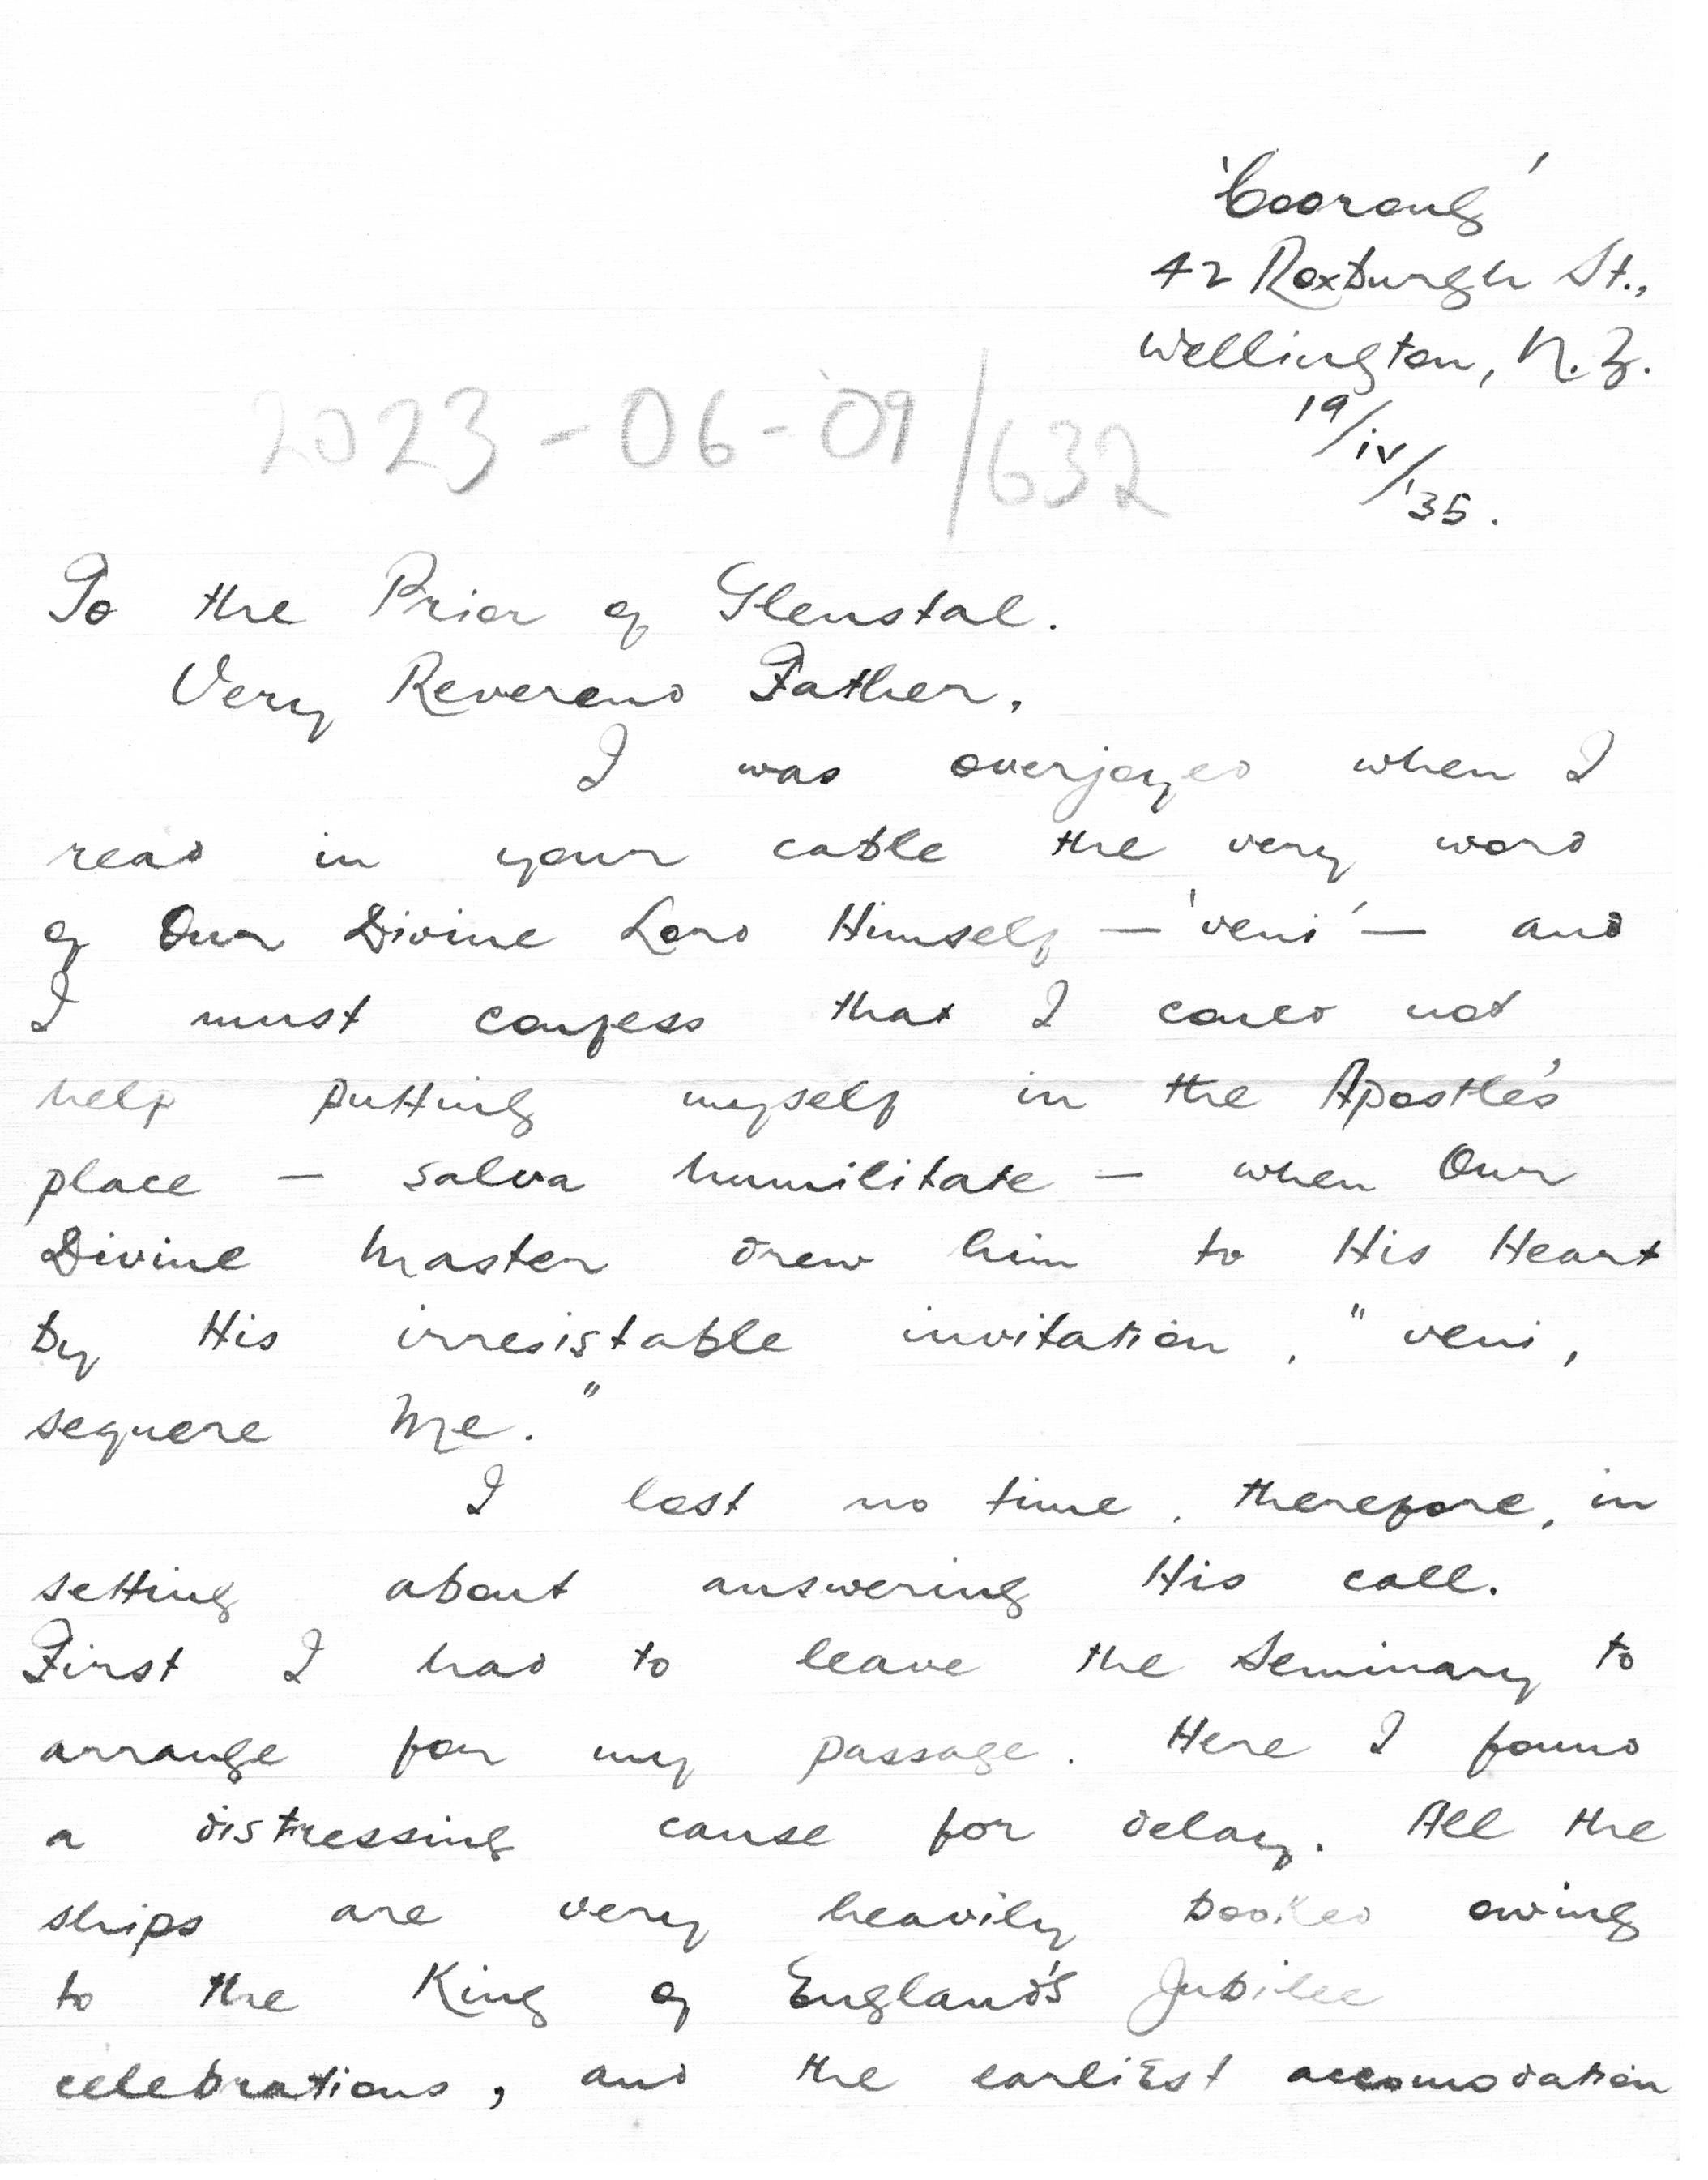 'Coorong'
42 Roxburgh St.,
Wellington, N.Z.
19/iv/'35.
2023-06-09/632
To the Prior of Glenstal.
Very Reverend Father,
I was overjoyed when I
read in your cable the very word
of Our Divine Lord Himself — 'veni' — and
I must confess that I could not
help putting myself in the Apostle's
place — salva humilitate — when Our
Divine Master drew him to His Heart
by His irresistable invitation, "veni,
sequere Me."
I lost no time, therefore, in
setting about answering His call.
First I had to leave the Seminary to
arrange for my passage. Here I found
a distressing cause for delay. All the
ships are very heavily booked owing
to the King of England's Jubilee
celebrations, and the earliest accomodation